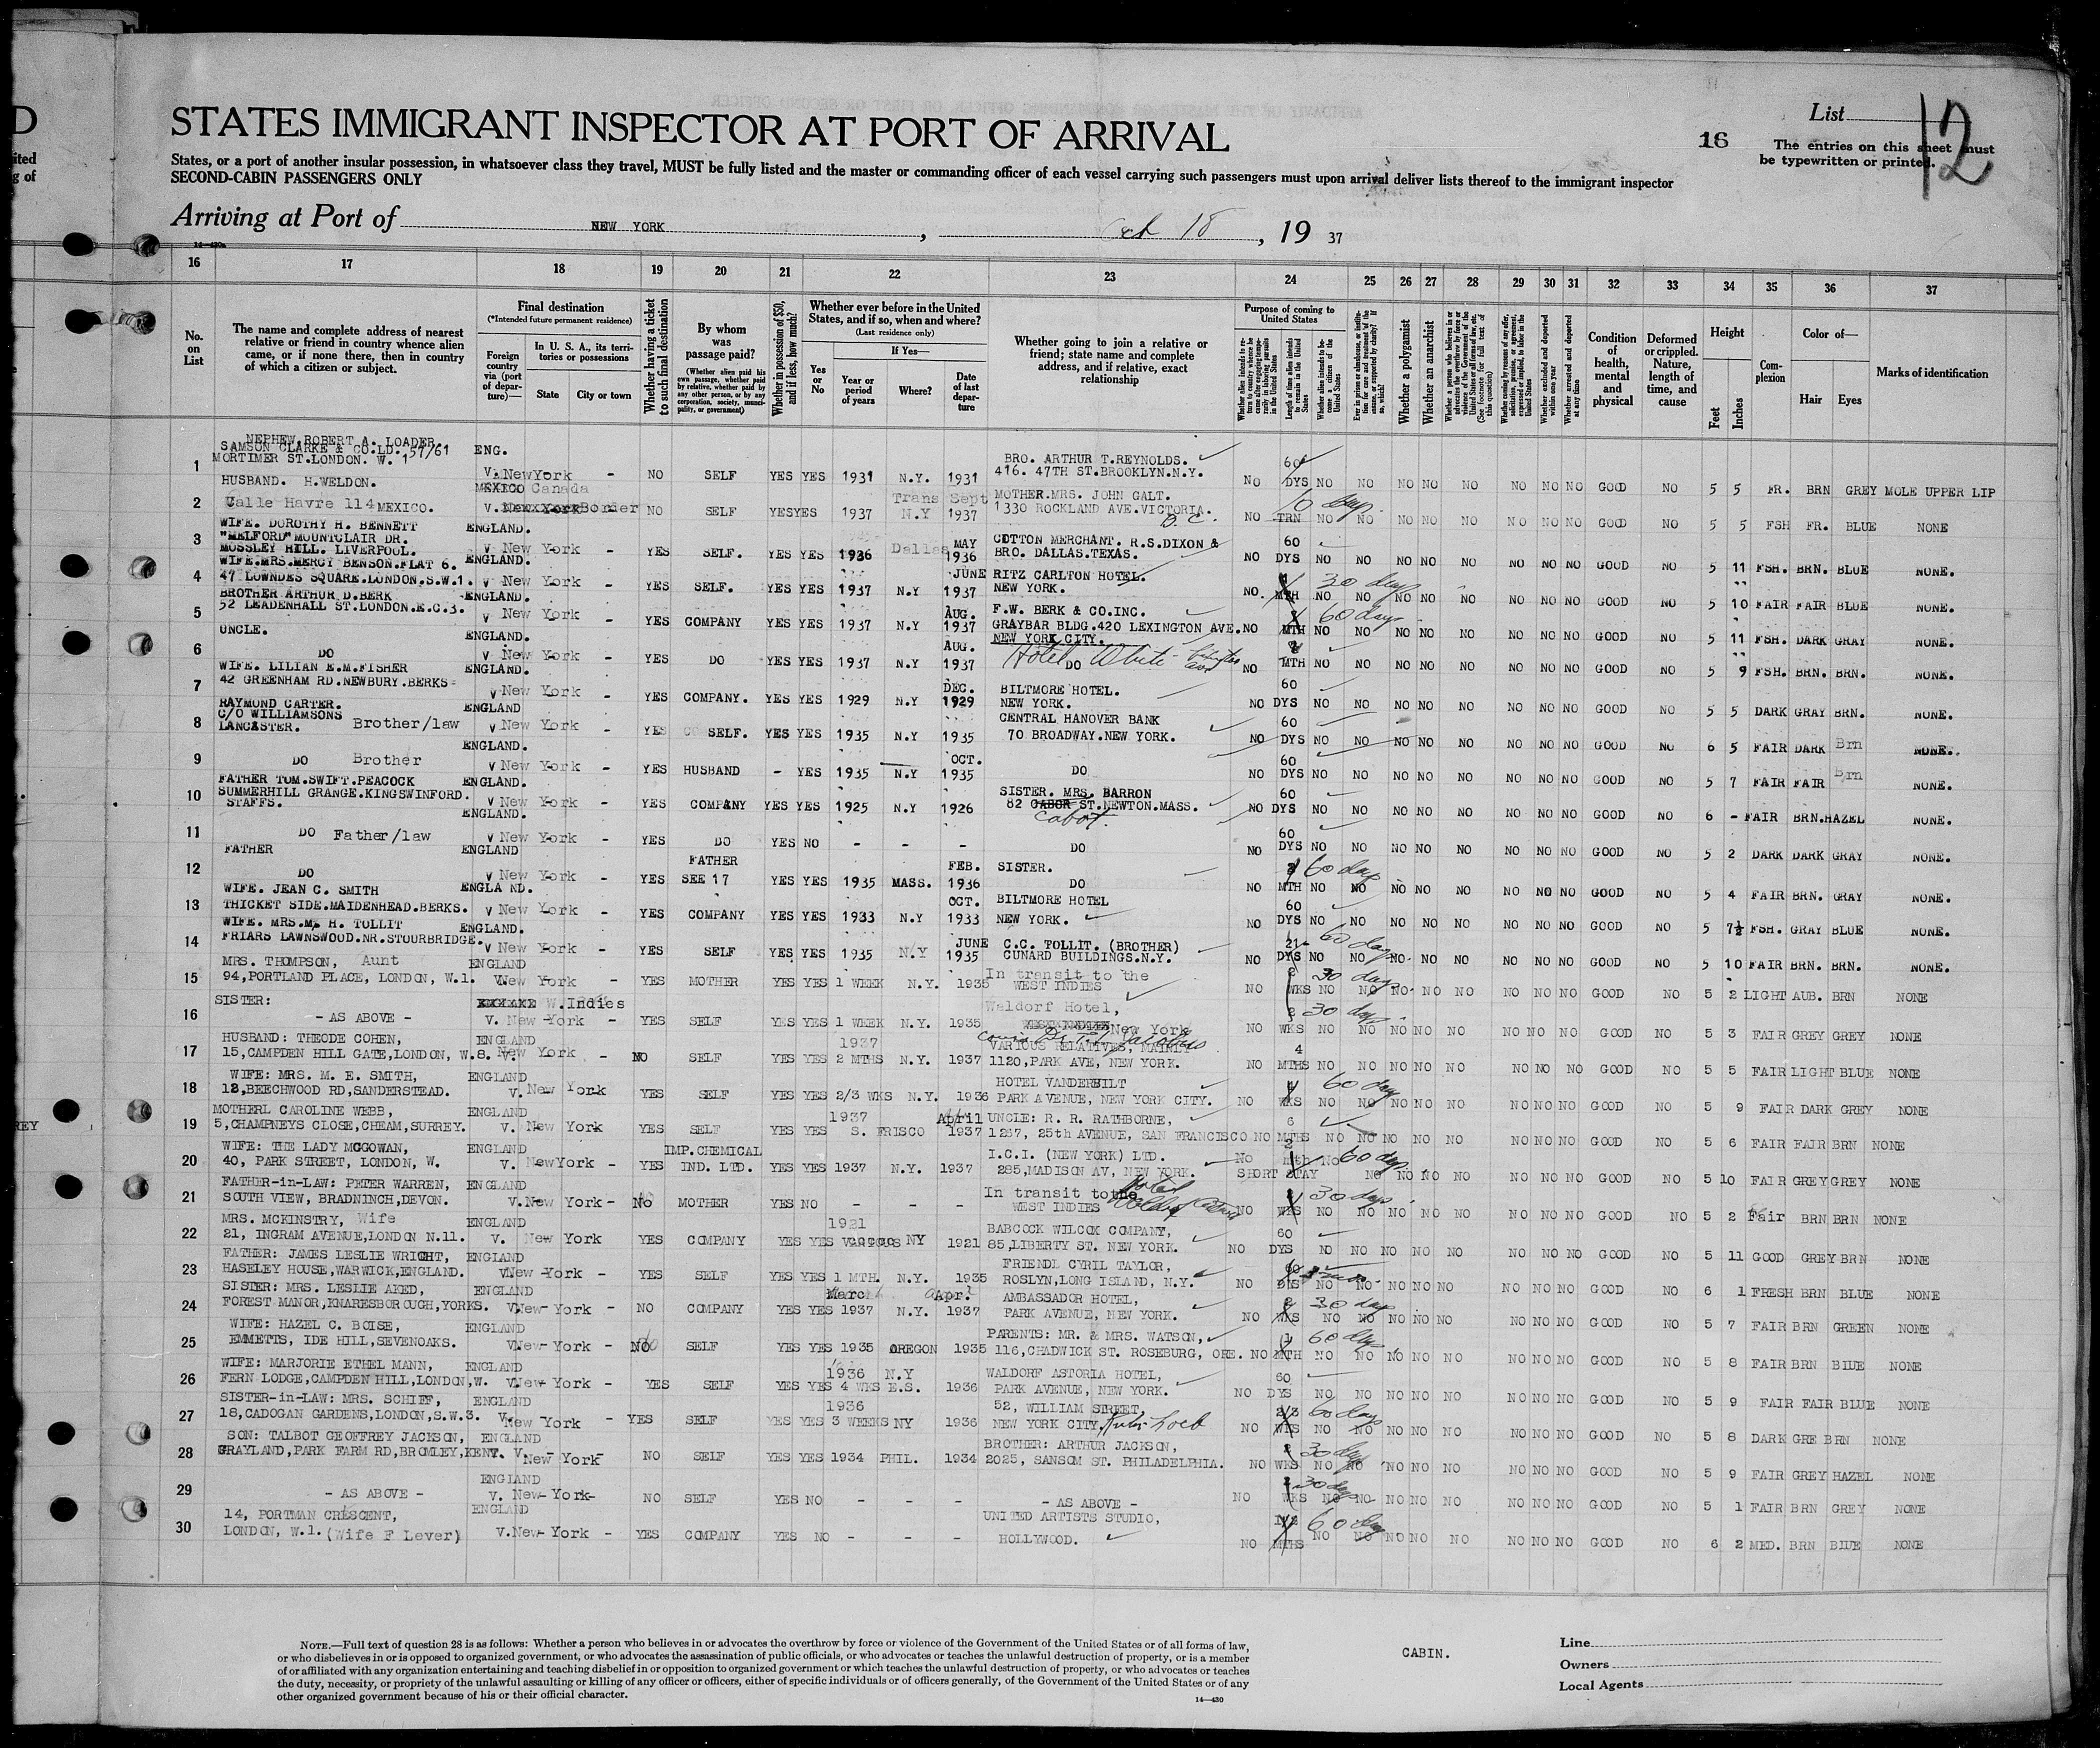 D
ited
g of
REY
STATES IMMIGRANT INSPECTOR AT PORT OF ARRIVAL
16
List
12
The entries on this sheet must
be typewritten or printed.
States, or a port of another insular possession, in whatsoever class they travel, MUST be fully listed and the master or commanding officer of each vessel carrying such passengers must upon arrival deliver lists thereof to the immigrant inspector
SECOND-CABIN PASSENGERS ONLY
Arriving at Port of NEW YORK, 18, 19 37
16 17 18 19 20 21 22 23 24 25 26 27 28 29 30 31 32 33 34 35 36 37
No. on List
The name and complete address of nearest relative or friend in country whence alien came, or if none there, then in country of which a citizen or subject.
Final destination
(*Intended future permanent residence)
Foreign country via (port of departure)—
In U. S. A., its territories or possessions
State City or town
Whether having a ticket to such final destination
By whom was passage paid?
(Whether alien paid his own passage, whether paid by relative, whether paid by any other person, or by any corporation, society, municipality, or government)
Whether in possession of $50, and if less, how much?
Whether ever before in the United States, and if so, when and where?
(Last residence only)
Yes or No
If Yes—
Year or period of years
Where?
Date of last departure
Whether going to join a relative or friend; state name and complete address, and if relative, exact relationship
Purpose of coming to United States
Whether a polygamist
Whether an anarchist
Condition of health, mental and physical
Deformed or crippled. Nature, length of time, and cause
Height
Feet Inches
Complexion
Color of—
Hair Eyes
Marks of identification
NEPHEW ROBERT A. LOADER.
SAMSON CLARKE & CO.LD. 57/61 ENG.
1 MORTIMER ST.LONDON. W. 1 V. NewYork - NO SELF YES YES 1931 N.Y. 1931 BRO. ARTHUR T.REYNOLDS. 416. 47TH ST.BROOKLYN.N.Y. NO 60 DYS NO NO NO NO NO NO NO NO GOOD NO 5 5 FR. BRN GREY MOLE UPPER LIP
HUSBAND. H.WELDON. MEXICO Canada
2 Calle Havre 114 MEXICO. V. New York Border NO SELF YES YES 1937 Trans N.Y Sept 1937 MOTHER.MRS. JOHN GALT. 1330 ROCKLAND AVE.VICTORIA. B.C. NO TRN 10 days NO NO NO NO NO NO NO NO GOOD NO 5 5 FSH FR. BLUE NONE
WIFE. DOROTHY H. BENNETT ENGLAND.
3 "MELFORD" MOUNTCLAIR DR. MOSSLEY HILL. LIVERPOOL. V New York - YES SELF. YES YES 1936 Dallas MAY 1936 COTTON MERCHANT. R.S.DIXON & BRO. DALLAS.TEXAS. NO 60 DYS NO NO NO NO NO NO NO NO GOOD NO 5 11 FSH. BRN. BLUE NONE.
WIFE.MRS.MERCY BENSON.FLAT 6. ENGLAND.
4 47 LOWNDES SQUARE.LONDON.S.W.1. V New York - YES SELF. YES YES 1937 N.Y JUNE 1937 RITZ CARLTON HOTEL. NEW YORK. NO. MTH 30 days NO NO NO NO NO NO NO NO GOOD NO 5 10 FAIR FAIR BLUE NONE.
BROTHER ARTHUR D.BERK ENGLAND.
5 52 LEADENHALL ST.LONDON.E.C.3. V New York - YES COMPANY YES YES 1937 N.Y AUG. 1937 F.W. BERK & CO.INC. GRAYBAR BLDG.420 LEXINGTON AVE. NEW YORK CITY. NO MTH 60 days NO NO NO NO NO NO NO NO GOOD NO 5 11 FSH. DARK GRAY NONE.
UNCLE. ENGLAND.
6 DO V New York - YES DO YES YES 1937 N.Y AUG. 1937 Hotel White DO NO MTH NO NO NO NO NO NO NO NO GOOD NO 5 9 FSH. BRN. BRN. NONE.
WIFE. LILIAN E.M.FISHER ENGLAND.
7 42 GREENHAM RD.NEWBURY.BERKS V New York - YES COMPANY. YES YES 1929 N.Y DEC. 1929 BILTMORE HOTEL. NEW YORK. NO 60 DYS NO NO NO NO NO NO NO NO GOOD NO 5 5 DARK GRAY BRN. NONE.
RAYMOND CARTER. ENGLAND
8 C/O WILLIAMSONS LANCASTER. Brother/law V New York - YES SELF. YES YES 1935 N.Y 1935 CENTRAL HANOVER BANK 70 BROADWAY.NEW YORK. NO 60 DYS NO NO NO NO NO NO NO NO GOOD NO 6 5 FAIR DARK Brn NONE.
ENGLAND.
9 DO Brother V New York - YES HUSBAND - YES 1935 N.Y OCT. 1935 DO NO 60 DYS NO NO NO NO NO NO NO NO GOOD NO 5 7 FAIR FAIR Brn NONE.
FATHER TOM.SWIFT.PEACOCK ENGLAND.
10 SUMMERHILL GRANGE.KINGSWINFORD. STAFFS. V New York - YES COMPANY YES YES 1925 N.Y 1926 SISTER. MRS. BARRON 82 CABOR ST.NEWTON.MASS. Cabot. NO 60 DYS NO NO NO NO NO NO NO NO GOOD NO 6 - FAIR BRN.HAZEL NONE.
ENGLAND.
11 DO Father/law V New York - YES DO YES NO - - - DO NO 60 DYS NO NO NO NO NO NO NO NO GOOD NO 5 2 DARK DARK GRAY NONE.
FATHER ENGLAND
12 DO V New York - YES FATHER SEE 17 YES YES 1935 MASS. FEB. 1936 SISTER. DO NO MTH 60 days NO NO NO NO NO NO NO NO GOOD NO 5 4 FAIR BRN. GRAY NONE.
WIFE. JEAN C. SMITH ENGLA ND.
13 THICKET SIDE.MAIDENHEAD.BERKS. V New York - YES COMPANY YES YES 1933 N.Y OCT. 1933 BILTMORE HOTEL NEW YORK. NO 60 DYS NO NO NO NO NO NO NO NO GOOD NO 5 7½ FSH. GRAY BLUE NONE.
WIFE. MRS.M. H. TOLLIT ENGLAND.
14 FRIARS LAWNSWOOD.NR.STOURBRIDGE. V New York - YES SELF YES YES 1935 N/Y JUNE 1935 C.C. TOLLIT. (BROTHER) CUNARD BUILDINGS.N.Y. NO 21 DYS 60 days NO NO NO NO NO NO NO NO GOOD NO 5 10 FAIR BRN. BRN. NONE.
MRS. THOMPSON, Aunt ENGLAND
15 94,PORTLAND PLACE, LONDON, W.1. V. New York - YES MOTHER YES YES 1 WEEK N.Y. 1935 In transit to the WEST INDIES NO WKS 30 days NO NO NO NO NO NO NO NO GOOD NO 5 2 LIGHT AUB. BRN NONE
SISTER: W.Indies
16 - AS ABOVE - V. New York - YES SELF YES YES 1 WEEK N.Y. 1935 Waldorf Hotel, New York NO WKS 30 days NO NO NO NO NO NO NO NO GOOD NO 5 3 FAIR GREY GREY NONE
HUSBAND: THEODE COHEN, ENGLAND
17 15,CAMPDEN HILL GATE,LONDON, W.8. V. New York - NO SELF YES YES 1937 2 MTHS N.Y. 1937 VARIOUS RELATIVES, MAINLY 1120,PARK AVE, NEW YORK. NO 4 MTHS NO NO NO NO NO NO NO NO GOOD NO 5 5 FAIR LIGHT BLUE NONE
WIFE: MRS. M. E. SMITH, ENGLAND
18 12,BEECHWOOD RD,SANDERSTEAD. V. New York - YES SELF YES YES 2/3 WKS N.Y. 1936 HOTEL VANDERBILT PARK AVENUE, NEW YORK CITY. NO WKS 60 days NO NO NO NO NO NO NO NO GOOD NO 5 9 FAIR DARK GREY NONE
MOTHERL CAROLINE WEBB, ENGLAND
19 5,CHAMPNEYS CLOSE,CHEAM,SURREY. V. New York - YES SELF YES YES 1937 S. FRISCO April 1937 UNCLE: R. R. RATHBORNE, 1267, 25th AVENUE, SAN FRANCISCO NO 6 MTHS NO NO NO NO NO NO NO NO GOOD NO 5 6 FAIR FAIR BRN NONE
WIFE: THE LADY MCGOWAN, ENGLAND
20 40, PARK STREET, LONDON, W. V. NewYork - YES IMP.CHEMICAL IND. LTD. YES YES 1937 N.Y. 1937 I.C.I. (NEW YORK) LTD. 285,MADISON AV, NEW YORK. No SHORT STAY mth No 60 days NO NO NO NO NO NO NO GOOD NO 5 10 FAIR GREY GREY NONE
FATHER-in-LAW: PETER WARREN, ENGLAND
21 SOUTH VIEW, BRADNINCH,DEVON. V.New York - No MOTHER YES NO - - - In transit to the WEST INDIES Hotel NO WKS 30 days NO NO NO NO NO NO NO NO GOOD NO 5 2 Fair BRN BRN NONE
MRS. MCKINSTRY, Wife ENGLAND
22 21, INGRAM AVENUE,LONDON N.11. V. New York YES COMPANY YES YES 1921 VARIOUS NY 1921 BABCOCK WILCOX COMPANY, 85,LIBERTY ST. NEW YORK. NO 60 DYS NO NO NO NO NO NO NO NO GOOD NO 5 11 GOOD GREY BRN NONE
FATHER: JAMES LESLIE WRIGHT, ENGLAND
23 HASELEY HOUSE,WARWICK,ENGLAND. V.New York - YES SELF YES YES 1 MTH. N.Y. 1935 FRIENDL CYRIL TAYLOR, ROSLYN,LONG ISLAND, N.Y. NO 60 DYS NO NO NO NO NO NO NO NO GOOD NO 6 1 FRESH BRN BLUE NONE
SISTER: MRS. LESLIE AKED, ENGLAND
24 FOREST MANOR,KNARESBOROUGH,YORKS. V.New York - NO COMPANY YES YES March 1937 N.Y. Apr. 1937 AMBASSADOR HOTEL, PARK AVENUE, NEW YORK. NO WKS 30 days NO NO NO NO NO NO NO NO GOOD NO 5 7 FAIR BRN GREEN NONE
WIFE: HAZEL C. BOISE, ENGLAND
25 EMMETTS, IDE HILL,SEVENOAKS. V.New York - NO SELF YES YES 1935 OREGON 1935 PARENTS: MR. & MRS. WATSON, 116,CHADWICK ST. ROSEBURG, ORE. NO MTH 60 days NO NO NO NO NO NO NO NO GOOD NO 5 8 FAIR BRN BLUE NONE
WIFE: MARJORIE ETHEL MANN, ENGLAND
26 FERN LODGE,CAMPDEN HILL,LONDON,W. V.New York - YES SELF YES YES 1936 4 WKS N.Y E.S. 1936 WALDORF ASTORIA HOTEL, PARK AVENUE, NEW YORK. NO 60 DYS NO NO NO NO NO NO NO NO GOOD NO 5 9 FAIR FAIR BLUE NONE
SISTER-in-LAW: MRS. SCHIFF, ENGLAND
27 18,CADOGAN GARDENS,LONDON,S.W.3. V. New York - YES SELF YES YES 1936 3 WEEKS NY 1936 52, WILLIAM STREET, NEW YORK CITY, Kuhn Loeb NO 2/3 WKS 60 days NO NO NO NO NO NO NO NO GOOD NO 5 8 DARK GRE BRN NONE
SON: TALBOT GEOFFREY JACKSON, ENGLAND
28 GRAYLAND,PARK FARM RD,BROMLEY,KENT. V. New York - NO SELF YES YES 1934 PHIL. 1934 BROTHER: ARTHUR JACKSON, 2025, SANSOM ST. PHILADELPHIA. NO WKS 30 days NO NO NO NO NO NO NO NO GOOD NO 5 9 FAIR GREY HAZEL NONE
ENGLAND
29 - AS ABOVE - V. New York - NO SELF YES NO - - - - AS ABOVE - NO WKS 30 days NO NO NO NO NO NO NO NO GOOD NO 5 1 FAIR BRN GREY NONE
14, PORTMAN CRESCENT, ENGLAND
30 LONDON, W.1. (Wife F Lever) V.New York - YES COMPANY YES NO - - - UNITED ARTISTS STUDIO, HOLLYWOOD. NO MTHS 60 days NO NO NO NO NO NO NO NO GOOD NO 6 2 MED. BRN BLUE NONE
NOTE.—Full text of question 28 is as follows: Whether a person who believes in or advocates the overthrow by force or violence of the Government of the United States or of all forms of law,
or who disbelieves in or is opposed to organized government, or who advocates the assassination of public officials, or who advocates or teaches the unlawful destruction of property, or is a member
of or affiliated with any organization entertaining and teaching disbelief in or opposition to organized government or which teaches the unlawful destruction of property, or who advocates or teaches
the duty, necessity, or propriety of the unlawful assaulting or killing of any officer or officers, either of specific individuals or of officers generally, of the Government of the United States or of any
other organized government because of his or their official character.
14—430
CABIN.
Line
Owners
Local Agents